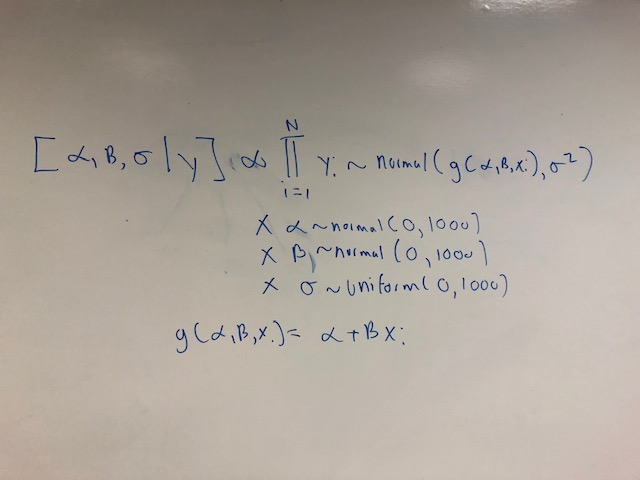 [α, β, σ | y] ∝ ∏ᵢ₌₁ᴺ yᵢ ~ normal(g(α,β,xᵢ),σ²)
× α ~ normal(0,1000)
× β ~ normal(0,1000)
× σ ~ uniform(0,1000)
g(α,β,xᵢ) = α + βxᵢ